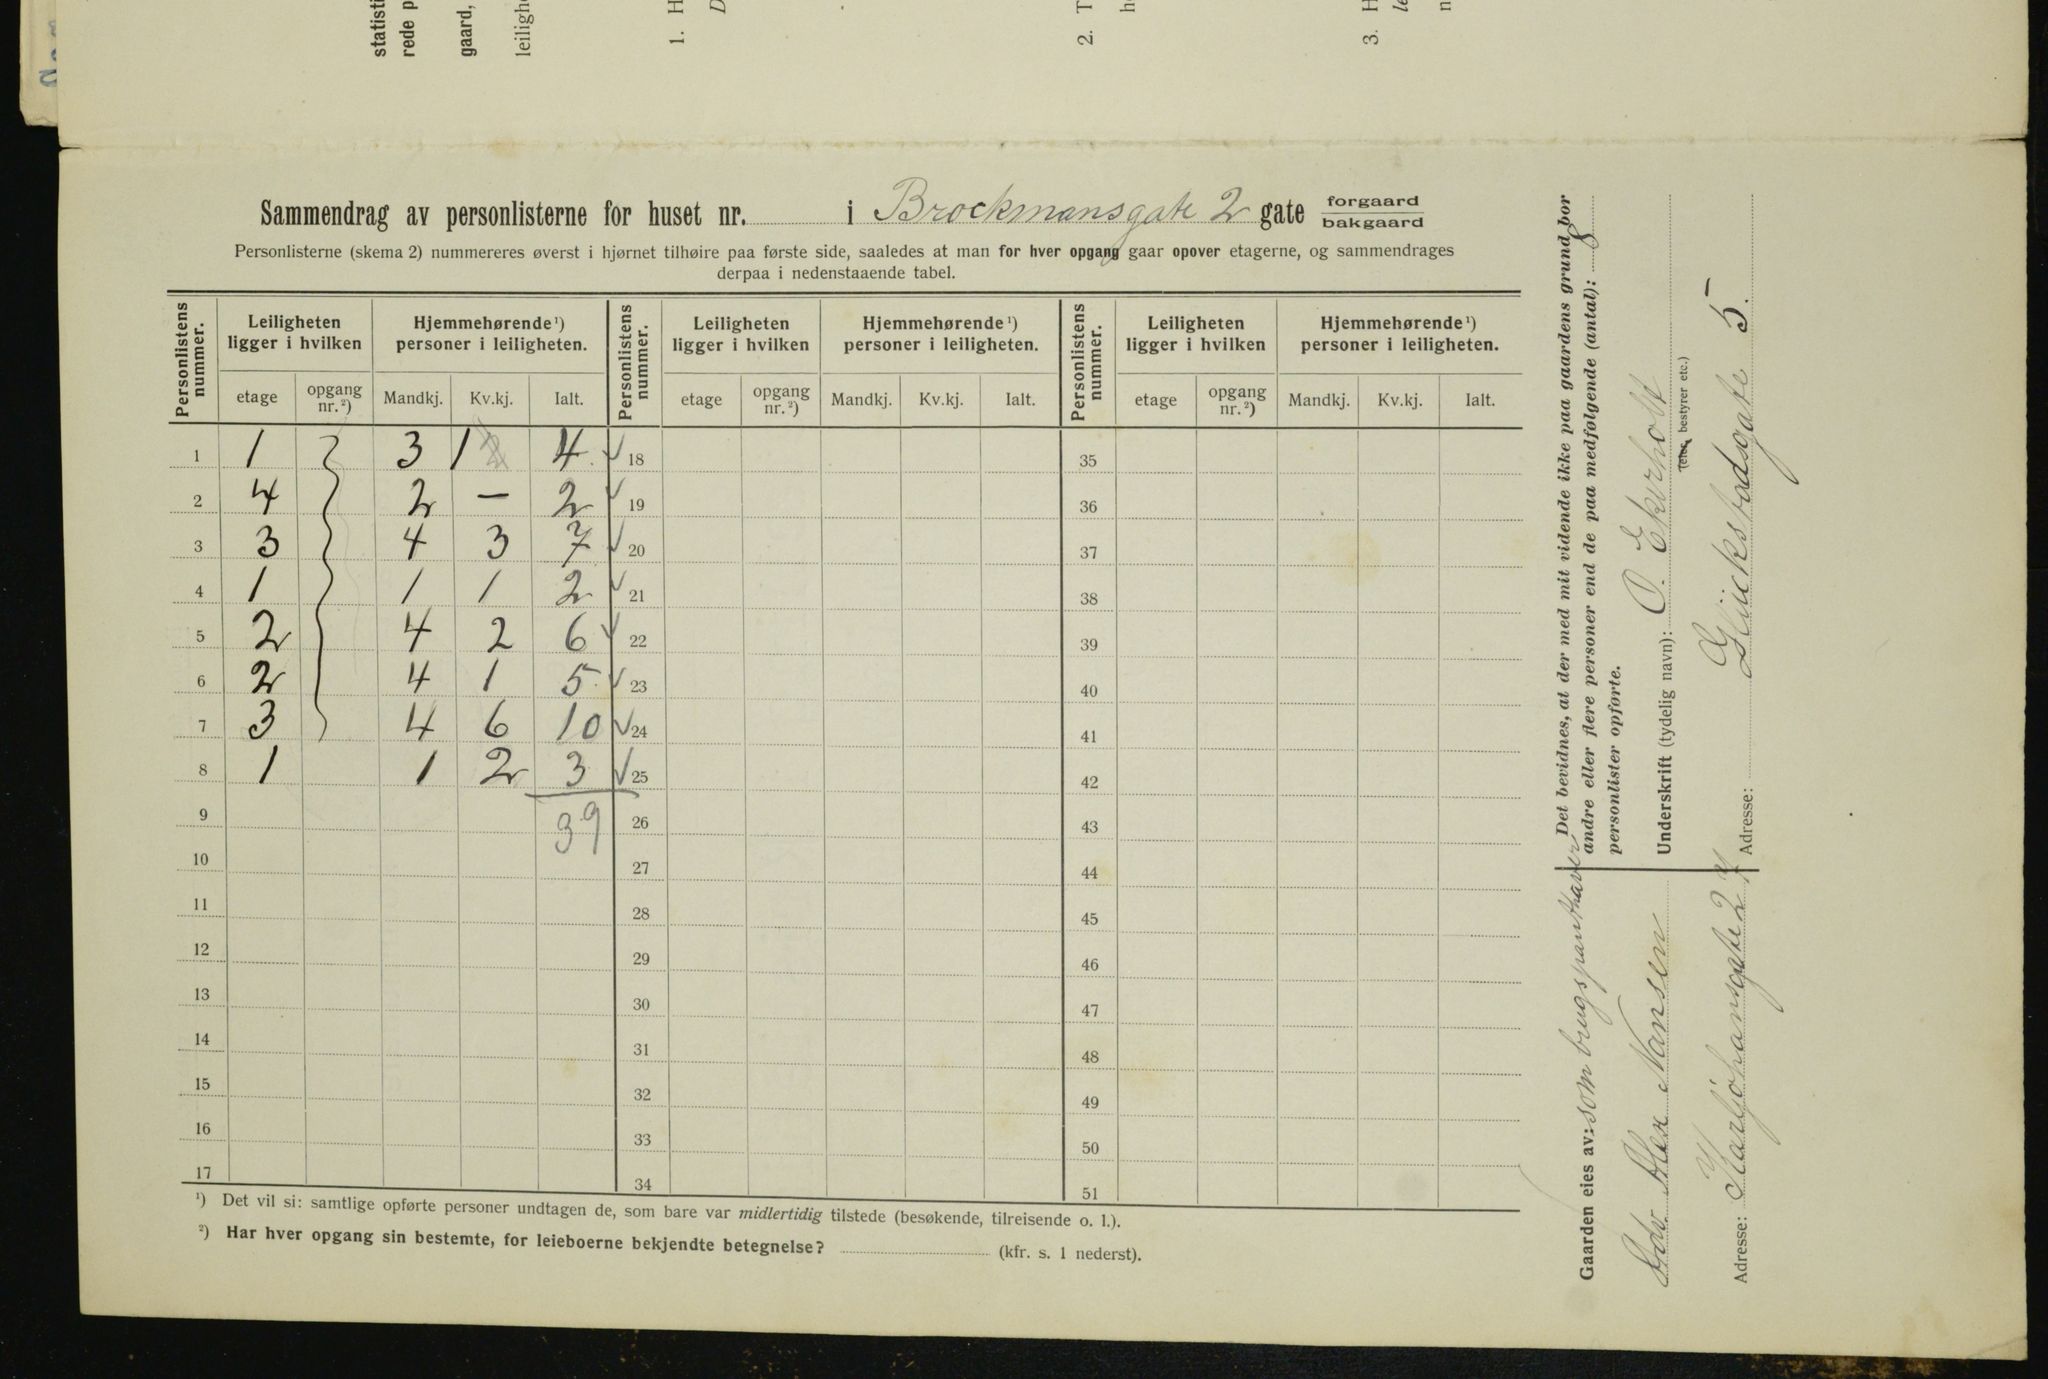 statisti
rede p
gaard,
leiligh
1. H
D
2. T
h
3. H
le
n
Sammendrag av personlisterne for huset nr. i Brockmansgate 2 gate forgaard
bakgaard
Personlisterne (skema 2) nummereres øverst i hjørnet tilhøire paa første side, saaledes at man for hver opgang gaar opover etagerne, og sammendrages
derpaa i nedenstaaende tabel.
Personlistens nummer. Leiligheten ligger i hvilken Hjemmehørende ¹) personer i leiligheten. Personlistens nummer. Leiligheten ligger i hvilken Hjemmehørende ¹) personer i leiligheten. Personlistens nummer. Leiligheten ligger i hvilken Hjemmehørende ¹) personer i leiligheten.
etage opgang nr. ²) Mandkj. Kv.kj. Ialt. etage opgang nr. ²) Mandkj. Kv.kj. Ialt. etage opgang nr. ²) Mandkj. Kv.kj. Ialt.
1 1 3 1 2 4 ✓ 18 35
2 4 2 — 2 ✓ 19 36
3 3 4 3 7 ✓ 20 37
4 1 1 1 2 ✓ 21 38
5 2 4 2 6 ✓ 22 39
6 2 4 1 5 ✓ 23 40
7 3 4 6 10 ✓ 24 41
8 1 1 2 3 ✓ 25 42
9 39 26 43
10 27 44
11 28 45
12 29 46
13 30 47
14 31 48
15 32 49
16 33 50
17 34 51
¹) Det vil si: samtlige opførte personer undtagen de, som bare var midlertidig tilstede (besøkende, tilreisende o. l.).
²) Har hver opgang sin bestemte, for leieboerne bekjendte betegnelse? (kfr. s. 1 nederst).
Det bevidnes, at der med mit vidende ikke paa gaardens grund bor
andre eller flere personer end de paa medfølgende (antal): 8
personlister opførte.
Underskrift (tydelig navn): O. Ekerholt
(eier, bestyrer etc.)
Adresse: Glücksbodsgate 5.
Gaarden eies av: som brugspanthaver
Adv. Alex Nansen
Adresse: Karljohansgate 27